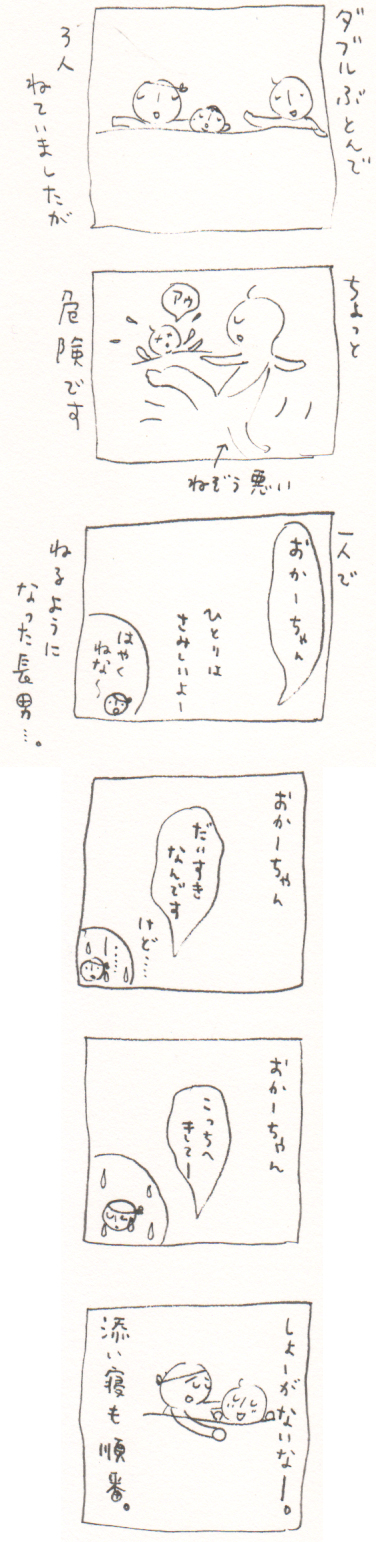 ダブルぶとんで
3人
ねていましたが
ちょっと
アゥ
危険です
ねぞう悪い
一人で
おかーちゃん
ひとりは
さみしいよー
はやく
ねな〜
ねるように
なった長男…。
おかーちゃん
だいすき
なんです
けど……
おかーちゃん
こっちへ
きてー
しょーがないなー。
添い寝も順番。